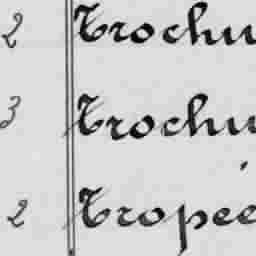 2 Trochu
3 Trochu
2 Tropée